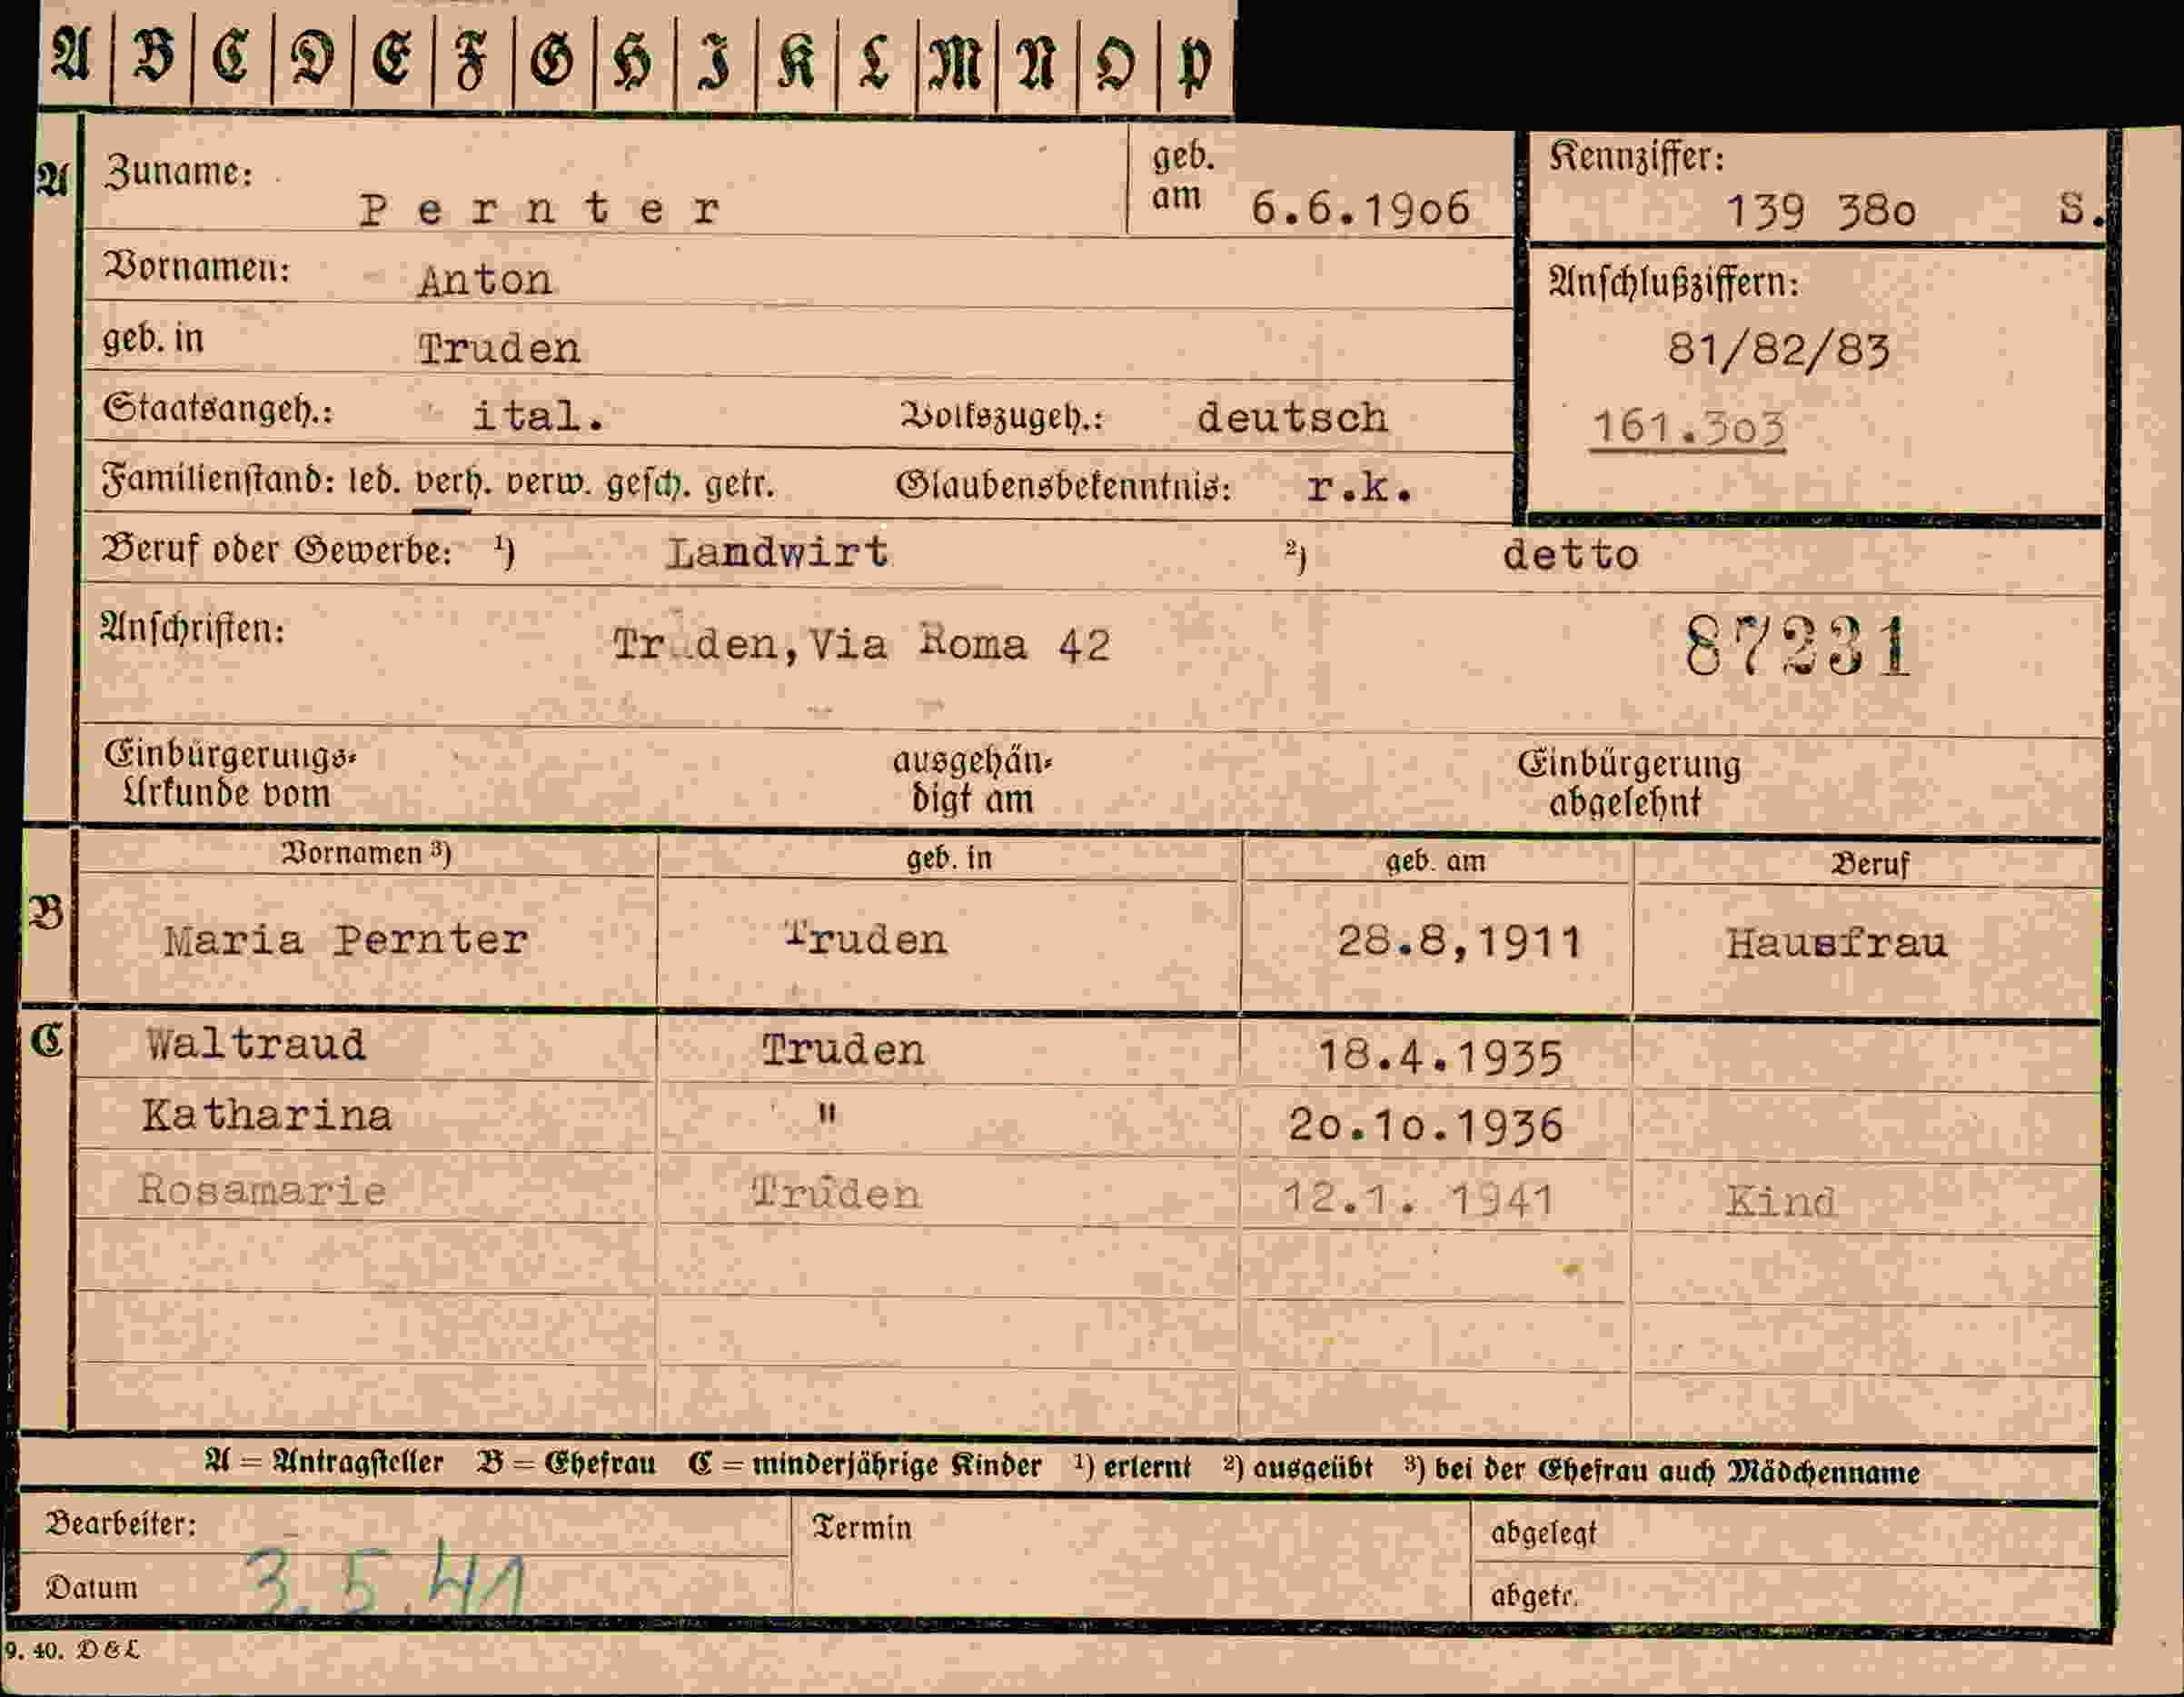 A B C D E F G H I K L M N O P
A Zuname: Pernter geb. am 6.6.1906 Kennziffer: 139 380 S.
Vornamen: Anton Anschlußziffern:
geb. in Truden 81/82/83
Staatsangeh.: ital. Volkszugeh.: deutsch 161.303
Familienstand: led. verh. verw. gesch. getr. Glaubensbekenntnis: r.k.
Beruf oder Gewerbe: 1) Landwirt 2) detto
Anschriften: Tr den, Via Roma 42 87231
Einbürgerungs-
Urkunde vom
ausgehän-
digt am
Einbürgerung
abgelehnt
Vornamen 3) geb. in geb. am Beruf
B Maria Pernter Truden 28.8,1911 Hausfrau
C Waltraud Truden 18.4.1935
Katharina " 20.10.1936
Rosamarie Truden 12.1. 1941 Kind
A = Antragsteller B = Ehefrau C = minderjährige Kinder 1) erlernt 2) ausgeübt 3) bei der Ehefrau auch Mädchenname
Bearbeiter: Termin abgelegt
Datum 3.5.41 abgetr.
9. 40. D & L